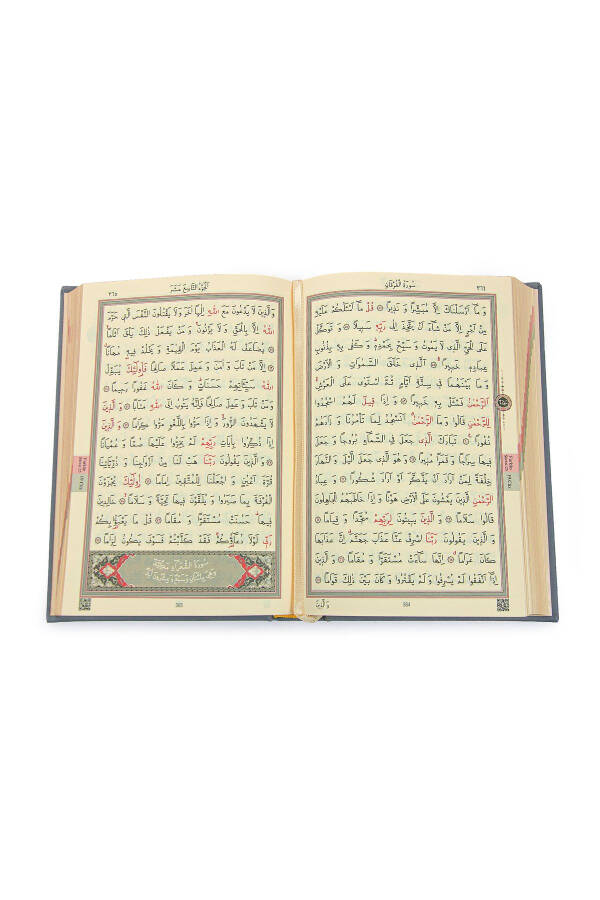 ٣٦٤ سُورَةُ الْفُرْقَانِ
وَمَٓا اَرْسَلْنَاكَ اِلَّا مُبَشِّرًا وَنَذِيرًا ۞ قُلْ مَٓا اَسْـَٔلُكُمْ عَلَيْهِ
مِنْ اَجْرٍ اِلَّا مَنْ شَٓاءَ اَنْ يَتَّخِذَ اِلٰى رَبِّهِ سَبِيلًا ۞ وَتَوَكَّلْ
عَلَى الْحَيِّ الَّذِي لَا يَمُوتُ وَسَبِّحْ بِحَمْدِهِ وَكَفٰى بِهِ بِذُنُوبِ
عِبَادِهِ خَبِيرًا ۞ اَلَّذِي خَلَقَ السَّمٰوَاتِ وَالْاَرْضَ
وَمَا بَيْنَهُمَا فِي سِتَّةِ اَيَّامٍ ثُمَّ اسْتَوٰى عَلَى الْعَرْشِ
اَلرَّحْمٰنُ فَسْـَٔلْ بِهِ خَبِيرًا ۞ وَاِذَا قِيلَ لَهُمُ اسْجُدُوا
لِلرَّحْمٰنِ قَالُوا وَمَا الرَّحْمٰنُ اَنَسْجُدُ لِمَا تَأْمُرُنَا وَزَادَهُمْ
نُفُورًا ۞ تَبَارَكَ الَّذِي جَعَلَ فِي السَّمَٓاءِ بُرُوجًا وَجَعَلَ
فِيهَا سِرَاجًا وَقَمَرًا مُنِيرًا ۞ وَهُوَ الَّذِي جَعَلَ الَّيْلَ وَالنَّهَارَ
خِلْفَةً لِمَنْ اَرَادَ اَنْ يَذَّكَّرَ اَوْ اَرَادَ شُكُورًا ۞ وَعِبَادُ
الرَّحْمٰنِ الَّذِينَ يَمْشُونَ عَلَى الْاَرْضِ هَوْنًا وَاِذَا خَاطَبَهُمُ الْجَاهِلُونَ
قَالُوا سَلَامًا ۞ وَالَّذِينَ يَبِيتُونَ لِرَبِّهِمْ سُجَّدًا وَقِيَامًا ۞
وَالَّذِينَ يَقُولُونَ رَبَّنَا اصْرِفْ عَنَّا عَذَابَ جَهَنَّمَ اِنَّ عَذَابَهَا
كَانَ غَرَامًا ۞ اِنَّهَا سَٓاءَتْ مُسْتَقَرًّا وَمُقَامًا ۞ وَالَّذِينَ
اِذَٓا اَنْفَقُوا لَمْ يُسْرِفُوا وَلَمْ يَقْتُرُوا وَكَانَ بَيْنَ ذٰلِكَ قَوَامًا ۞
وَالَّذِينَ
364
اَلْجُزْءُ التَّاسِعُ عَشَرَ ٣٦٥
وَالَّذِينَ لَا يَدْعُونَ مَعَ اللّٰهِ اِلٰهًا اٰخَرَ وَلَا يَقْتُلُونَ النَّفْسَ الَّتِي حَرَّمَ
اللّٰهُ اِلَّا بِالْحَقِّ وَلَا يَزْنُونَ وَمَنْ يَفْعَلْ ذٰلِكَ يَلْقَ اَثَامًا ۞
يُضَاعَفْ لَهُ الْعَذَابُ يَوْمَ الْقِيٰمَةِ وَيَخْلُدْ فِيهِ مُهَانًا ۞
اِلَّا مَنْ تَابَ وَاٰمَنَ وَعَمِلَ عَمَلًا صَالِحًا فَاُولٰٓئِكَ يُبَدِّلُ
اللّٰهُ سَيِّـَٔاتِهِمْ حَسَنَاتٍ وَكَانَ اللّٰهُ غَفُورًا رَحِيمًا ۞
وَمَنْ تَابَ وَعَمِلَ صَالِحًا فَاِنَّهُ يَتُوبُ اِلَى اللّٰهِ مَتَابًا ۞ وَالَّذِينَ
لَا يَشْهَدُونَ الزُّورَ وَاِذَا مَرُّوا بِاللَّغْوِ مَرُّوا كِرَامًا ۞ وَالَّذِينَ
اِذَا ذُكِّرُوا بِاٰيَاتِ رَبِّهِمْ لَمْ يَخِرُّوا عَلَيْهَا صُمًّا وَعُمْيَانًا
۞ وَالَّذِينَ يَقُولُونَ رَبَّنَا هَبْ لَنَا مِنْ اَزْوَاجِنَا وَذُرِّيَّاتِنَا
قُرَّةَ اَعْيُنٍ وَاجْعَلْنَا لِلْمُتَّقِينَ اِمَامًا ۞ اُولٰٓئِكَ يُجْزَوْنَ
الْغُرْفَةَ بِمَا صَبَرُوا وَيُلَقَّوْنَ فِيهَا تَحِيَّةً وَسَلَامًا ۞ خَالِدِينَ
فِيهَا حَسُنَتْ مُسْتَقَرًّا وَمُقَامًا ۞ قُلْ مَا يَعْبَؤُا بِكُمْ
رَبِّي لَوْلَا دُعَٓاؤُكُمْ فَقَدْ كَذَّبْتُمْ فَسَوْفَ يَكُونُ لِزَامًا ۞
سُورَةُ الشُّعَرَاءِ مَكِّيَّةٌ
365